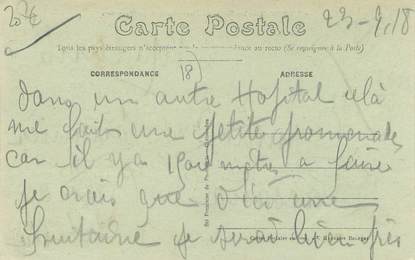 20€
23-9.18
Carte Postale
Tous les pays étrangers n'acceptent pas la correspondance au recto (Se renseigner à la Poste)
CORRESPONDANCE
(18)
ADRESSE
dans un autre Hopital cela
me fait une petite promenade
car il y a metres a faire
je crois que d'ici une
quitaine je serai bien près